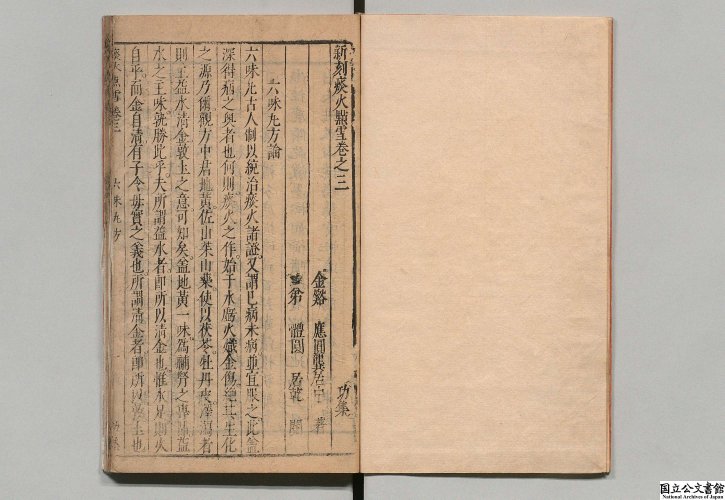 新刻痰火點雪卷之三
金谿 應圓龔居中 著
弟 體圓 居乾 閱
功集
六味丸方論
六味丸古人制以統治痰火諸證又謂已病未病並宜服之此蓋
深得病之奧者也何則痰火之作始于水虧火熾金傷絕其生化
之源乃爾觀方中君地黃佐山茱山藥使以茯苓牡丹皮澤瀉者
則主益水清金敦土之意可知矣蓋地黃一味為補腎之專品益
水之主味孰勝此乎夫所謂益水者即所以清金也惟水足則火
自平而金自清有子令母實之義也所謂清金者即所以敦土也
痰火點雪卷三 六味丸方 功集
国立公文書館
National Archives of Japan